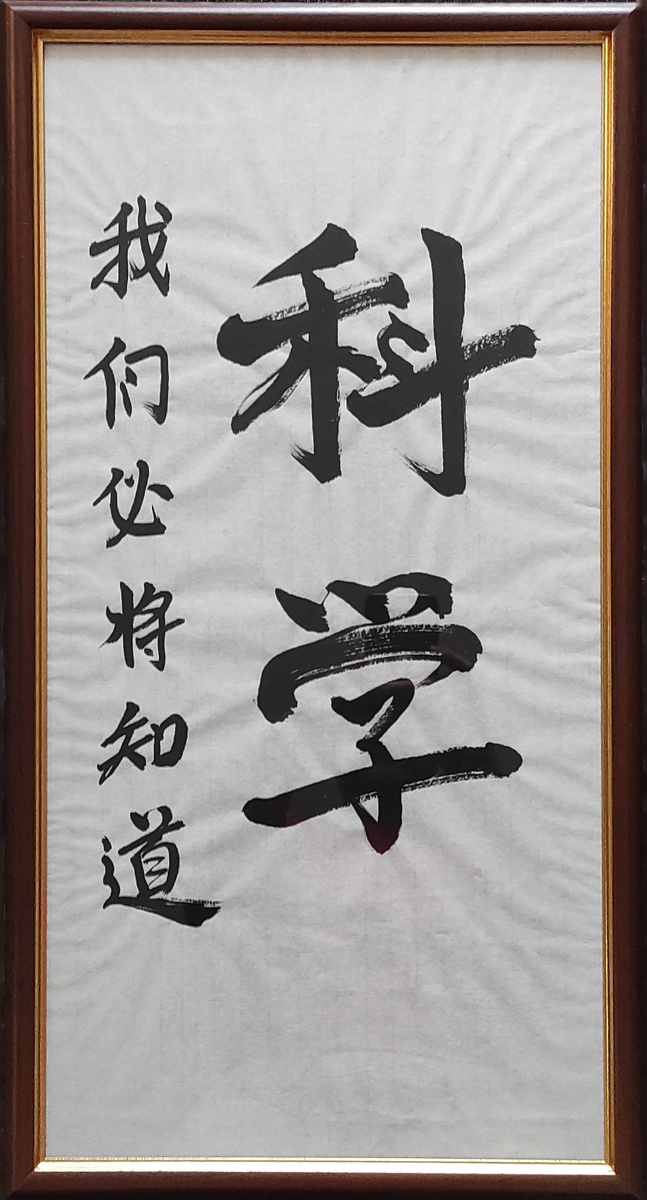 科学
我们必将知道